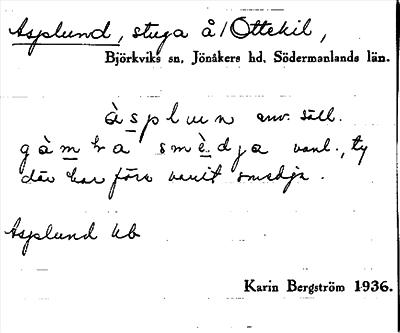 Asplund, stuga å / Ottekil,
Björkviks sn, Jönåkers hd, Södermanlands län.
àsplun anv. säll.
gàmla smèdja vanl., ty
där har förr varit smedja.
Asplund Ub
Karin Bergström 1936.